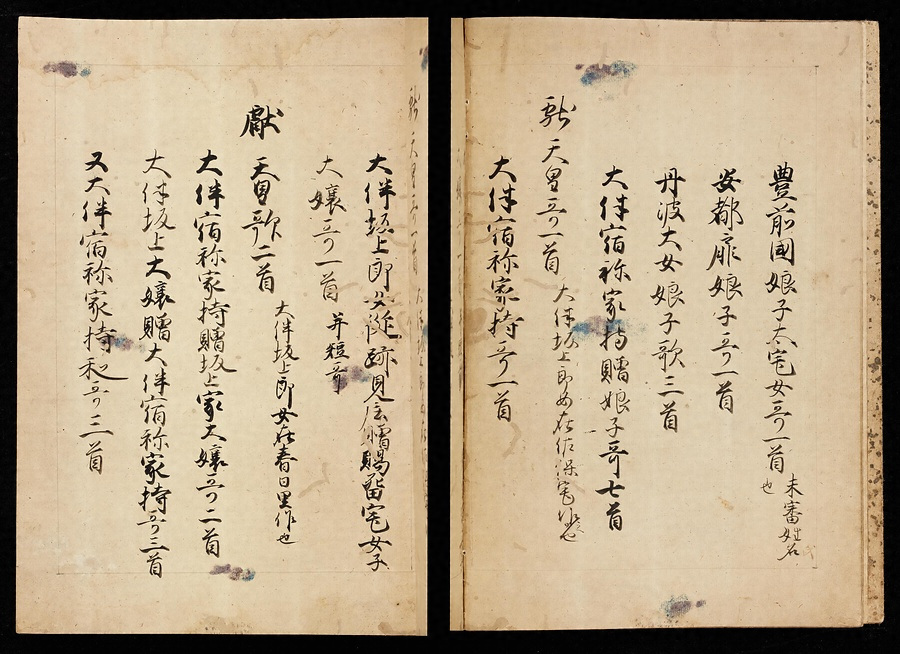 豊前國娘子大宅女哥一首 未審姓名也
安都扉娘子哥一首
丹波大女娘子歌三首
大伴宿祢家持贈娘子哥七首
獻天皇哥一首 大伴坂上郎女在佐保宅作也
大伴宿祢家持哥一首
大伴坂上郎女従跡見庄贈賜留宅女子
大嬢哥一首 并短哥
獻天皇歌二首 大伴坂上郎女在春日里作也
大伴宿祢家持贈坂上家大嬢哥二首
大伴坂上大嬢贈大伴宿祢家持哥三首
又大伴宿祢家持和哥三首